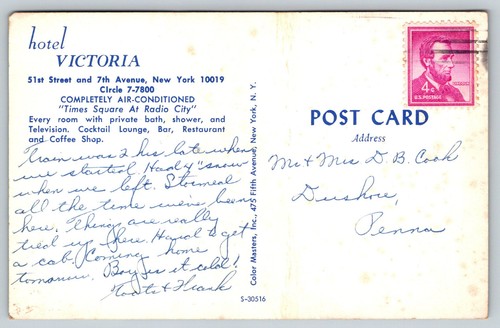 hotel
VICTORIA
51st Street and 7th Avenue, New York 10019
CIrcle 7-7800
COMPLETELY AIR-CONDITIONED
"Times Square At Radio City"
Every room with private bath, shower, and
Television. Cocktail Lounge, Bar, Restaurant
and Coffee Shop.
Train was 2 hrs late when
we started. Had 4" snow
when we left. Stormed
all the time we've been
here. Things are really
tied up here. Hard to get
a cab. Coming home
tomorrow. Boy is it cold!
& Frank
S-30516
Color Masters, Inc., 475 Fifth Avenue, New York, N. Y.
4¢
U.S. POSTAGE
POST CARD
Address
Mr & Mrs D. B. Cook
Dushore,
Penna